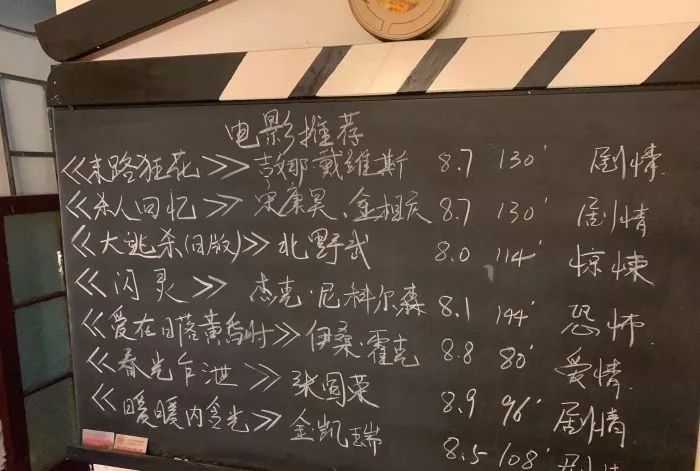 电影推荐
《末路狂花》 吉娜·戴维斯 8.7 130' 剧情
《杀人回忆》 宋康昊、金相庆 8.7 130' 剧情
《大逃杀(旧版)》 北野武 8.0 114' 惊悚
《闪灵》 杰克·尼科尔森 8.1 144' 恐怖
《爱在日落黄昏时》 伊桑·霍克 8.8 80' 爱情
《春光乍泄》 张国荣 8.9 96' 剧情
《暖暖内含光》 金凯瑞 8.5 108' 剧情